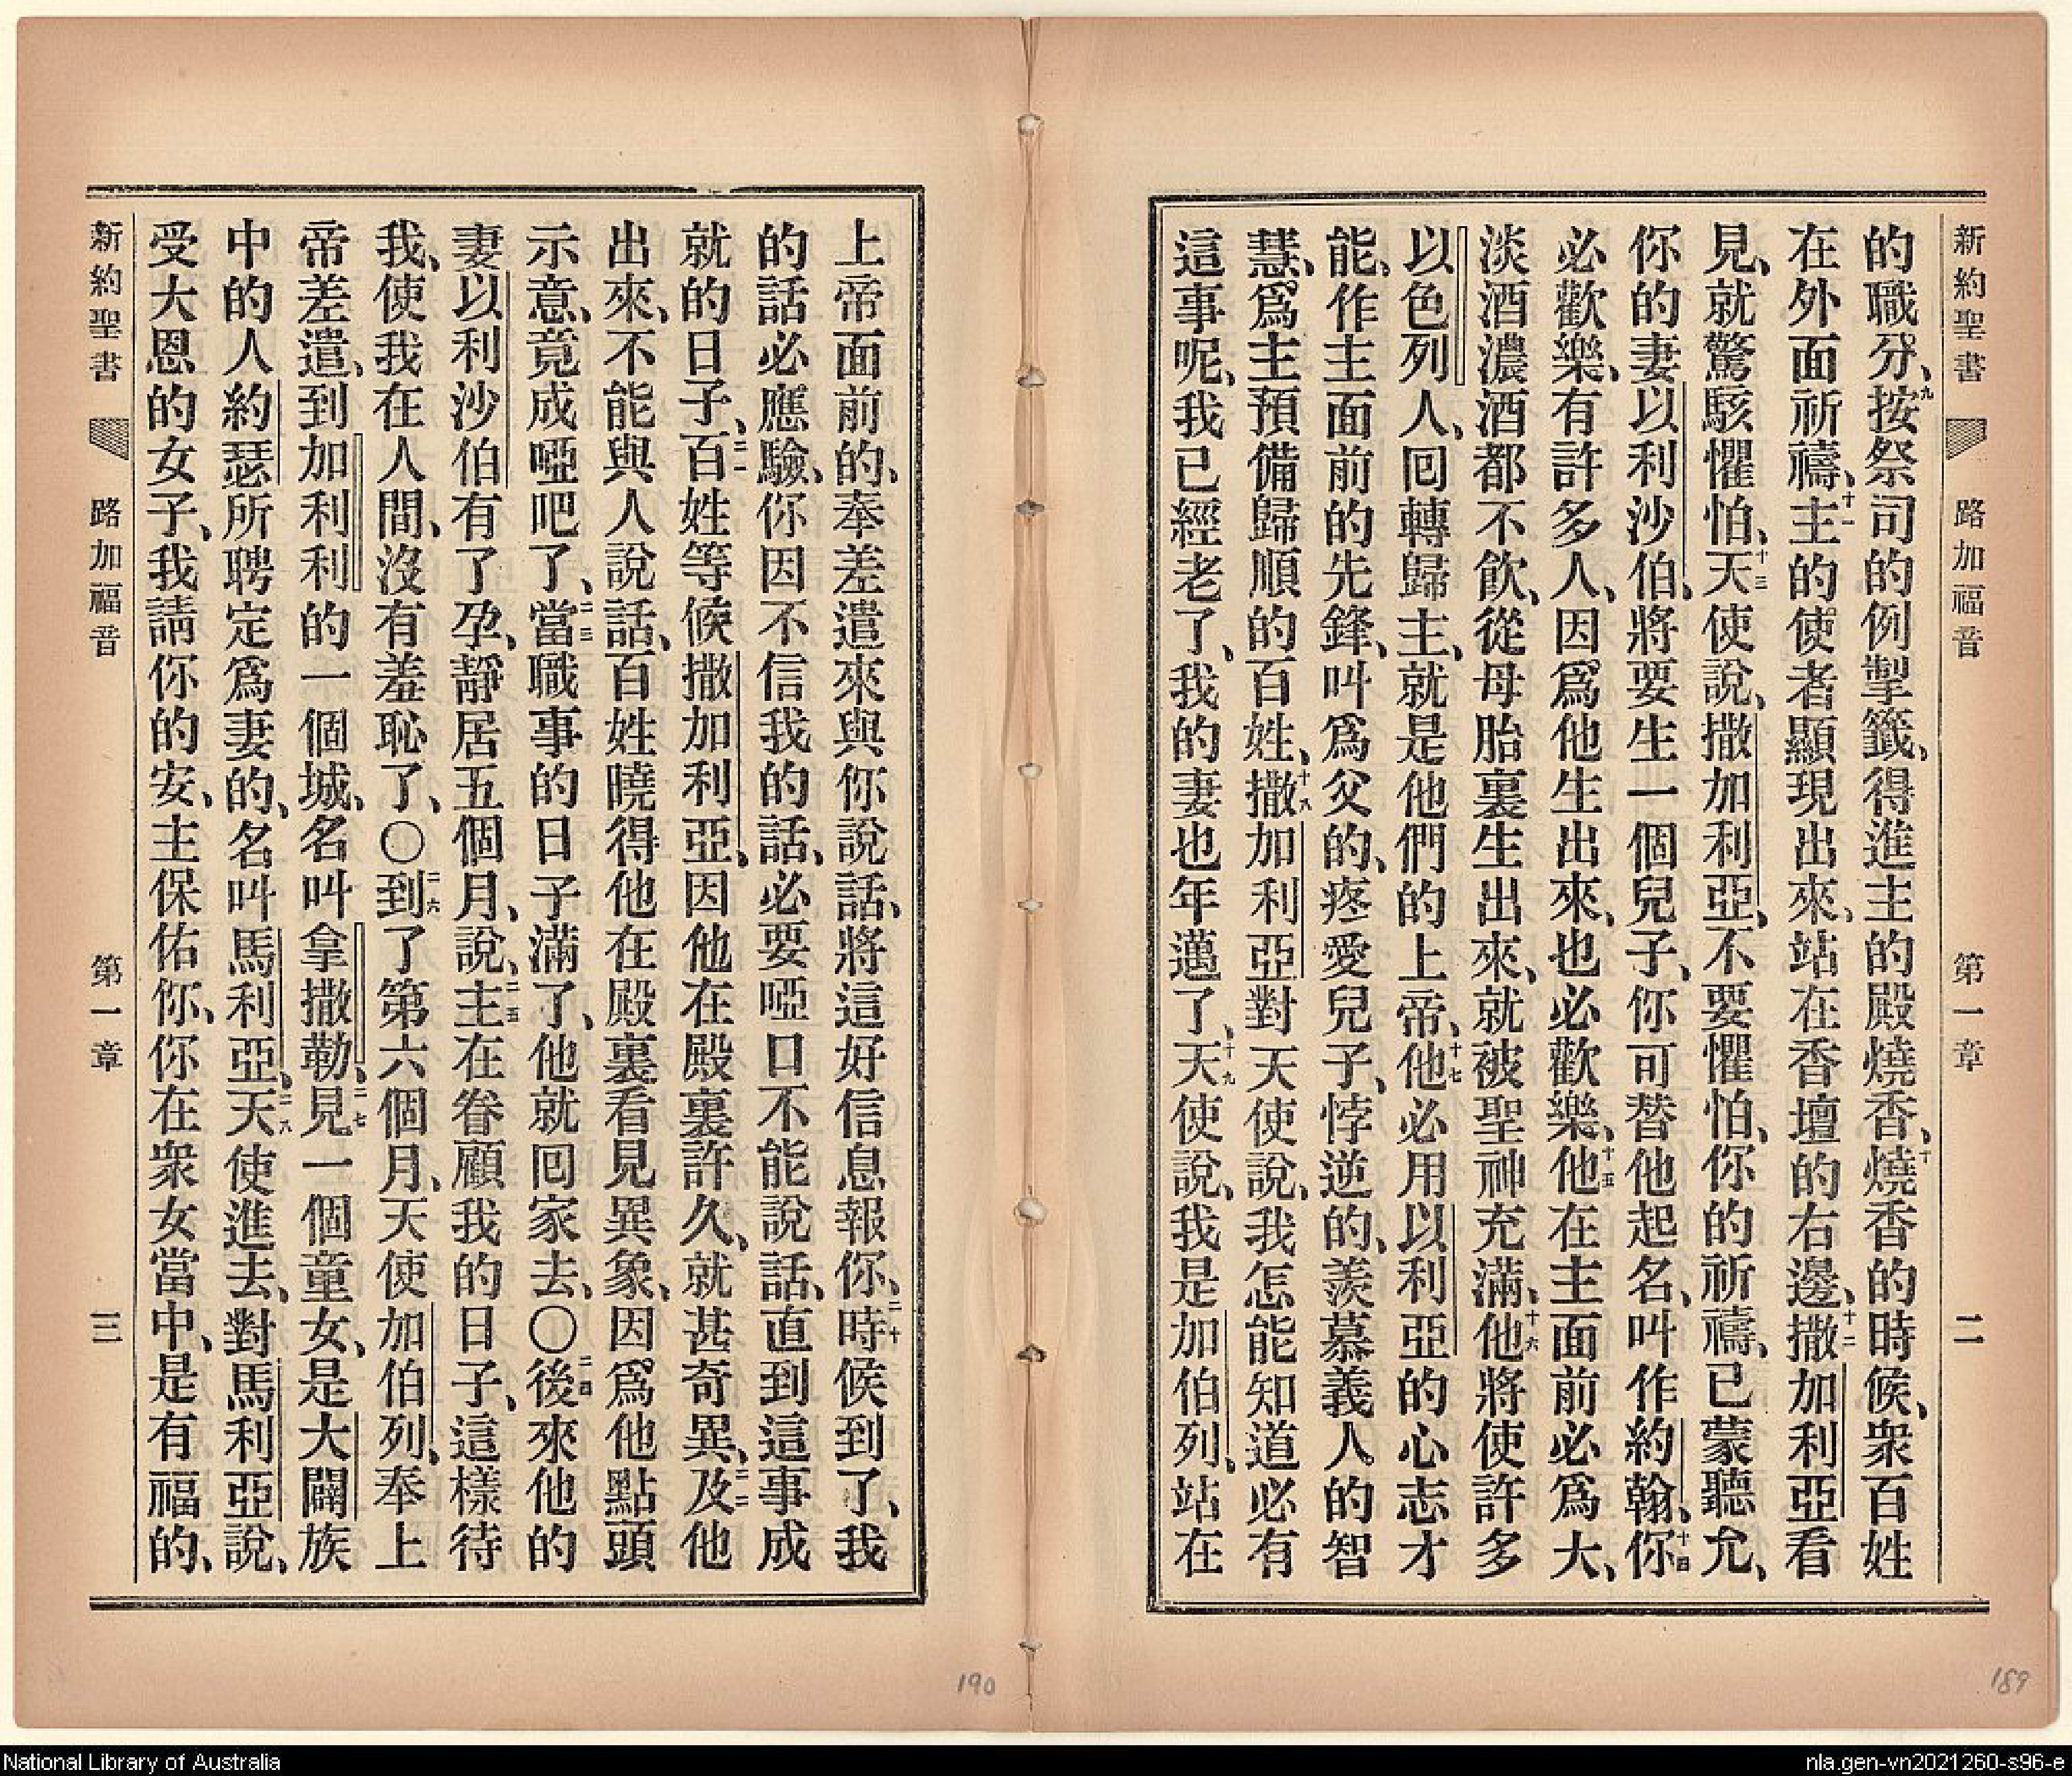 新約聖書 路加福音 第一章 二
的職分、九按祭司的例掣籤、得進主的殿燒香、十燒香的時候、衆百姓
在外面祈禱、十一主的使者顯現出來、站在香壇的右邊、十二撒加利亞看
見、就驚駭懼怕、十三天使說、撒加利亞、不要懼怕、你的祈禱、已蒙聽允、
你的妻以利沙伯、將要生一個兒子、你可替他起名、叫作約翰、十四你
必歡樂、有許多人、因爲他生出來、也必歡樂、十五他在主面前必爲大、
淡酒濃酒都不飲、從母胎裏生出來、就被聖神充滿、十六他將使許多
以色列人、囘轉歸主、就是他們的上帝、十七他必用以利亞的心志才
能、作主面前的先鋒、叫爲父的、疼愛兒子、悖逆的、羨慕義人的智
慧、爲主預備歸順的百姓、十八撒加利亞對天使說、我怎能知道必有
這事呢、我已經老了、我的妻也年邁了、十九天使說、我是加伯列、站在
上帝面前的、奉差遣來與你說話、將這好信息報你、二十時候到了、我
的話必應驗、你因不信我的話、必要啞口不能說話、直到這事成
就的日子、二一百姓等候撒加利亞、因他在殿裏許久、就甚奇異、二二及他
出來、不能與人說話、百姓曉得他在殿裏看見異象、因爲他點頭
示意、竟成啞吧了、二三當職事的日子滿了、他就囘家去、〇二四後來他的
妻以利沙伯有了孕、靜居五個月、說、二五主在眷顧我的日子、這樣待
我、使我在人間、沒有羞恥了、〇二六到了第六個月、天使加伯列、奉上
帝差遣、到加利利的一個城、名叫拿撒勒、二七見一個童女、是大闢族
中的人約瑟所聘定爲妻的、名叫馬利亞、二八天使進去、對馬利亞說、
受大恩的女子、我請你的安、主保佑你、你在衆女當中、是有福的、
新約聖書 路加福音 第一章 三
190
189
National Library of Australia
nla.gen-vn2021260-s96-e